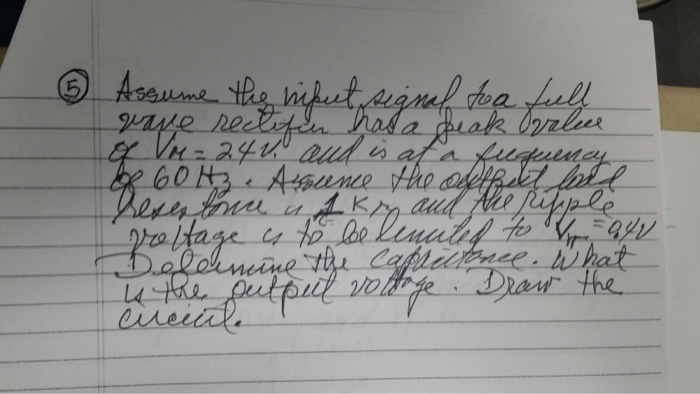 5 Assume the input signal to a full
wave rectifier has a peak value
of VM = 24V. and is at a frequency
of 60 Hz. Assume the output load
resistance is 1 K and the ripple
voltage is to be limited to Vr = 0,4V
Determine the capacitance. What
is the output voltage. Draw the
circuit.